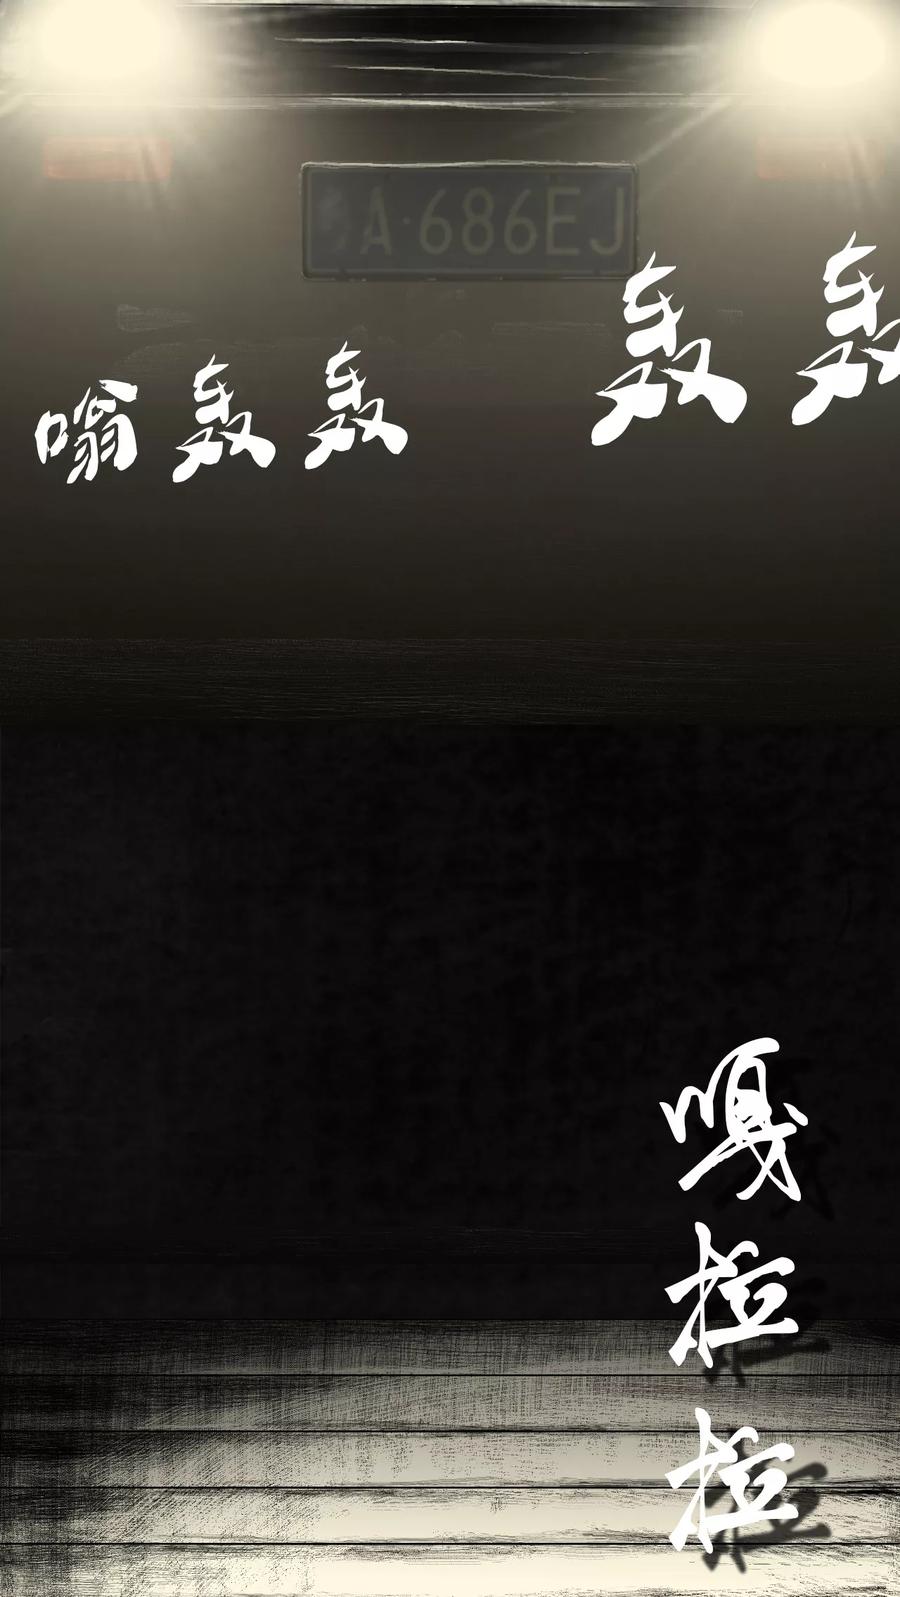 A·686EJ
嗡轰轰
轰轰
嘎拉拉